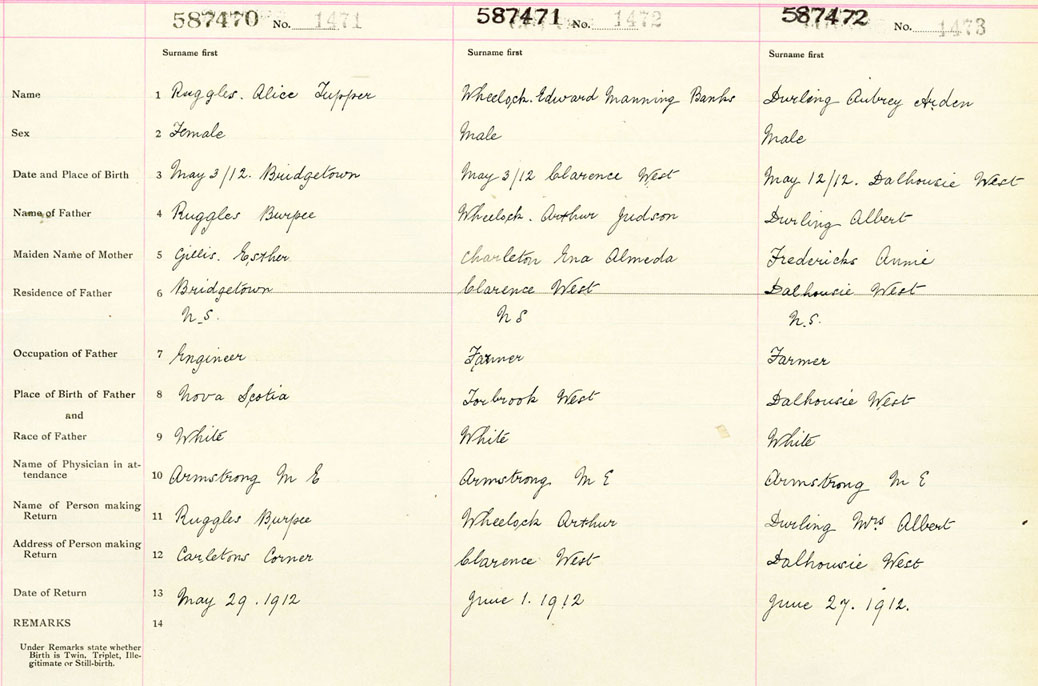 587470 No. 1471 587471 No. 1472 587472 No. 1473
Surname first Surname first Surname first
Name 1 Ruggles. Alice Tupper Wheelock. Edward Manning Banks Durling Aubrey Arden
Sex 2 Female Male Male
Date and Place of Birth 3 May 3/12. Bridgetown May 3/12 Clarence West May 12/12. Dalhousie West
Name of Father 4 Ruggles Burpee Wheelock. Arthur Judson Durling Albert
Maiden Name of Mother 5 Gillis. Esther Charleton Ena Almeda Fredericks Annie
Residence of Father 6 Bridgetown Clarence West Dalhousie West
N.S. N S N.S.
Occupation of Father 7 Engineer Farmer Farmer
Place of Birth of Father 8 Nova Scotia Torbrook West Dalhousie West
and
Race of Father 9 White White White
Name of Physician in at-
tendance 10 Armstrong M E Armstrong M E Armstrong M E
Name of Person making
Return 11 Ruggles Burpee Wheelock Arthur Durling Mrs. Albert
Address of Person making
Return 12 Carletons Corner Clarence West Dalhousie West
Date of Return 13 May 29. 1912 June 1. 1912 June 27. 1912.
REMARKS 14
Under Remarks state whether
Birth is Twin, Triplet, Ille-
gitimate or Still-birth.